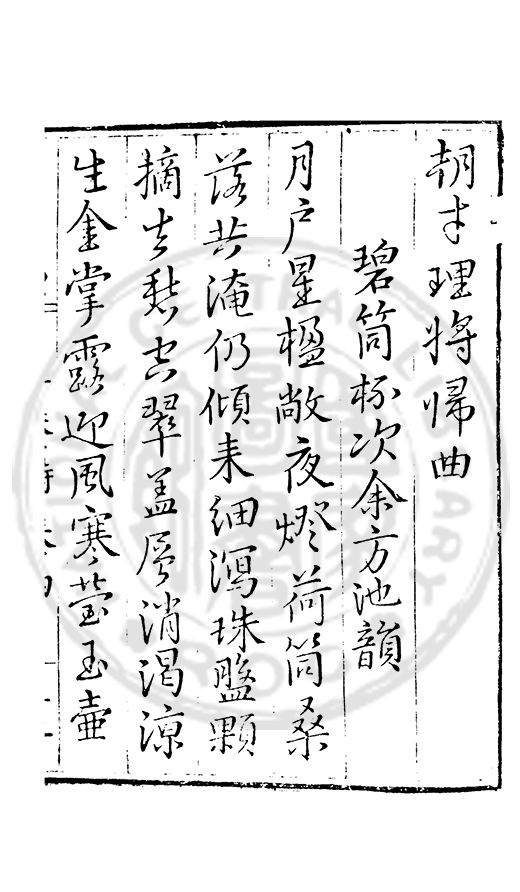 朝才理將歸曲
碧筒杯次余方池韻
月戶星楹敞夜燈荷筒桑
落共淹仍傾来細瀉珠盤顆
摘去愁空翠盖層消渴涼
生金掌露迎風寒瑩玉壺